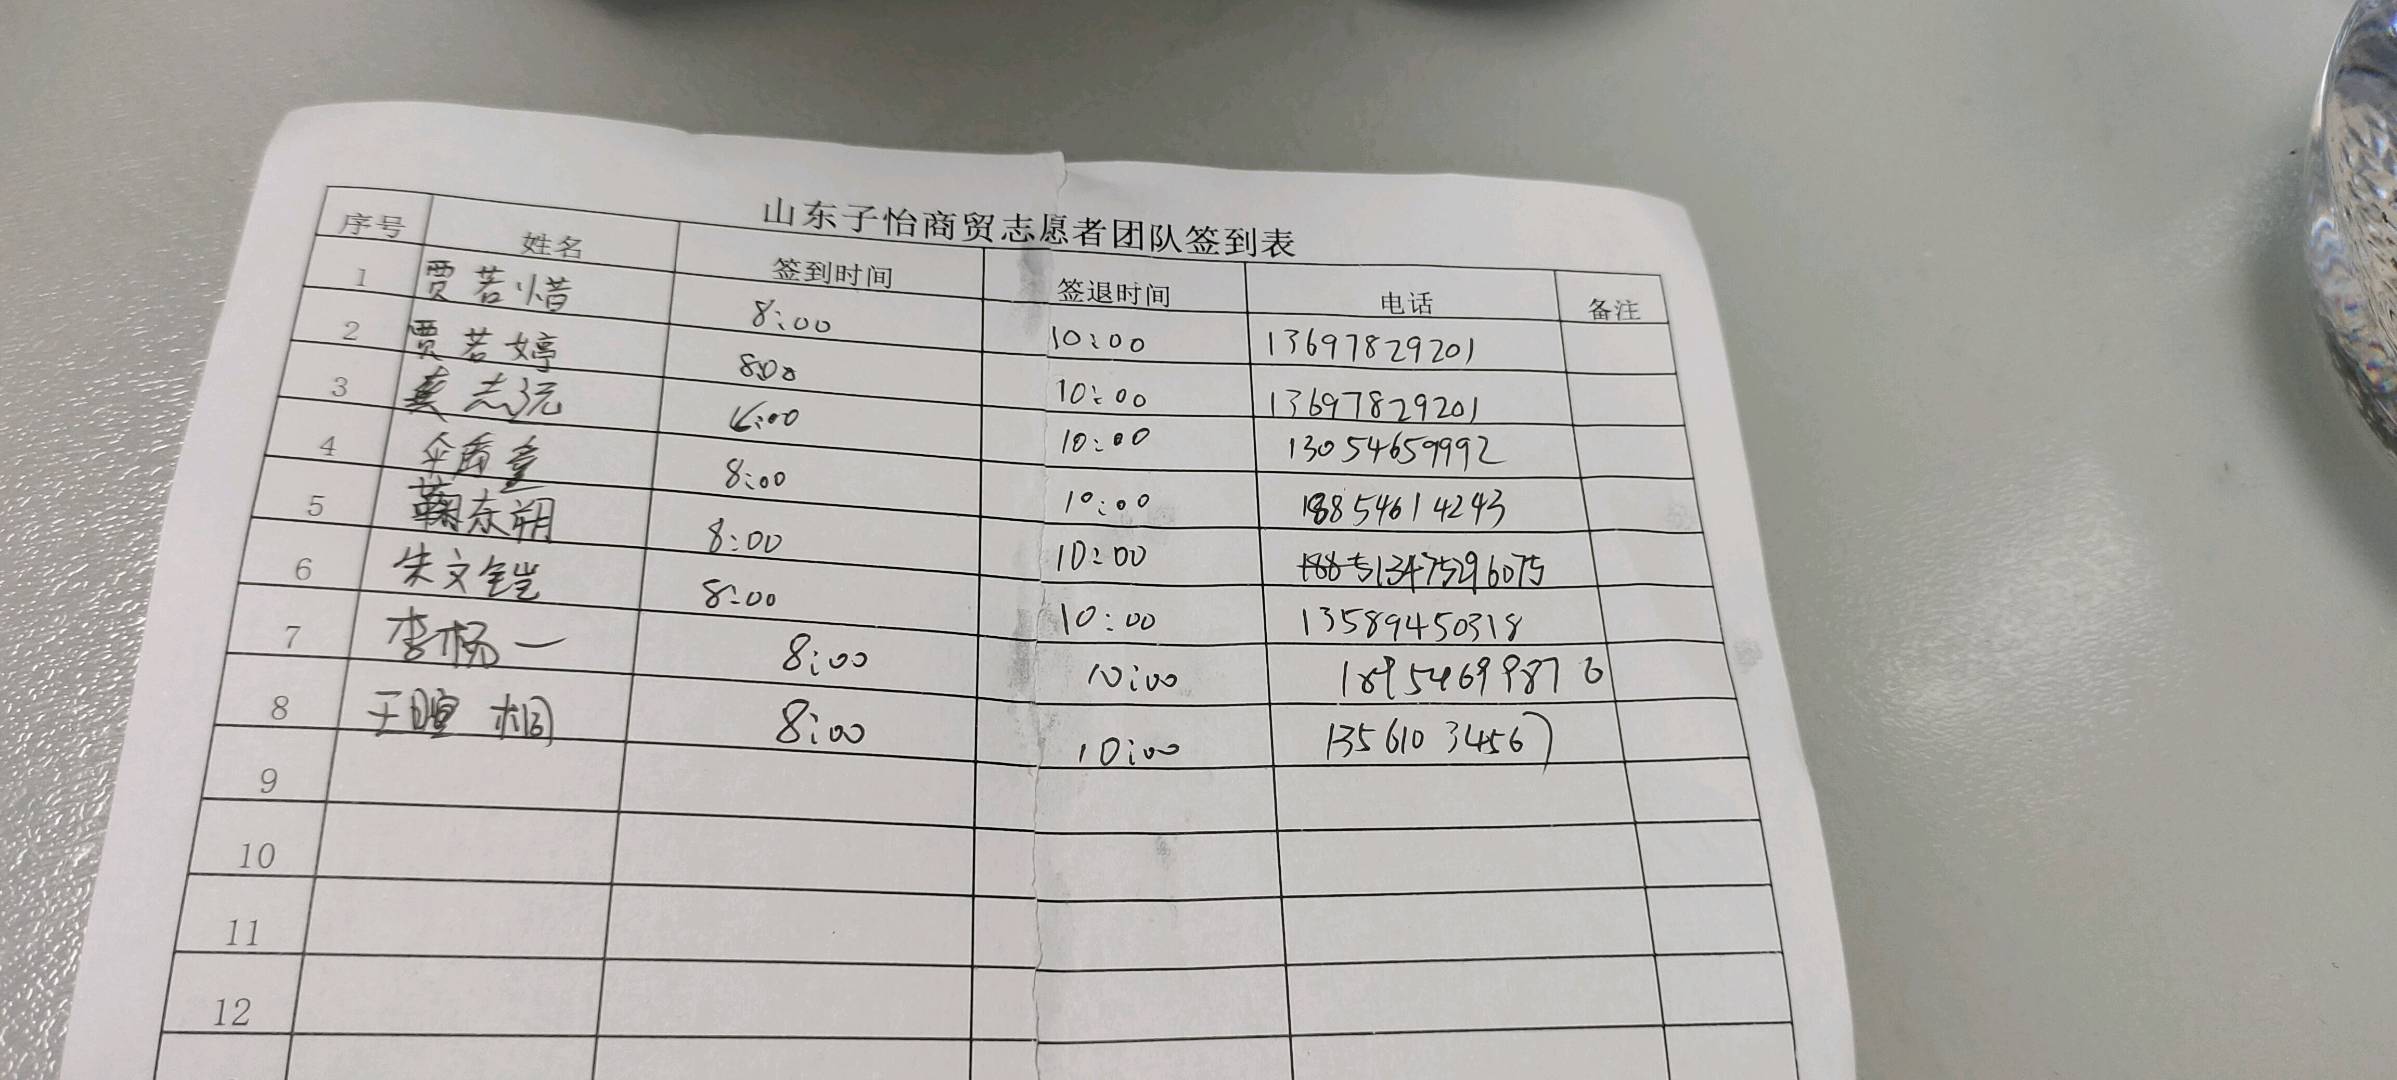 山东子怡商贸志愿者团队签到表
序号 姓名 签到时间 签退时间 电话 备注
1 贾若惜 8:00 10:00 13697829201
2 贾若婷 8:00 10:00 13697829201
3 志沅 10:00 13054659992
4 8:00 10:00 18854614243
5 鞠东朔 8:00 10:00 13475296075
6 朱文铠 8:00 10:00 13589450318
7 李杨一 8:00 10:00 18954699876
8 王暄桐 8:00 10:00 13561034567
9
10
11
12